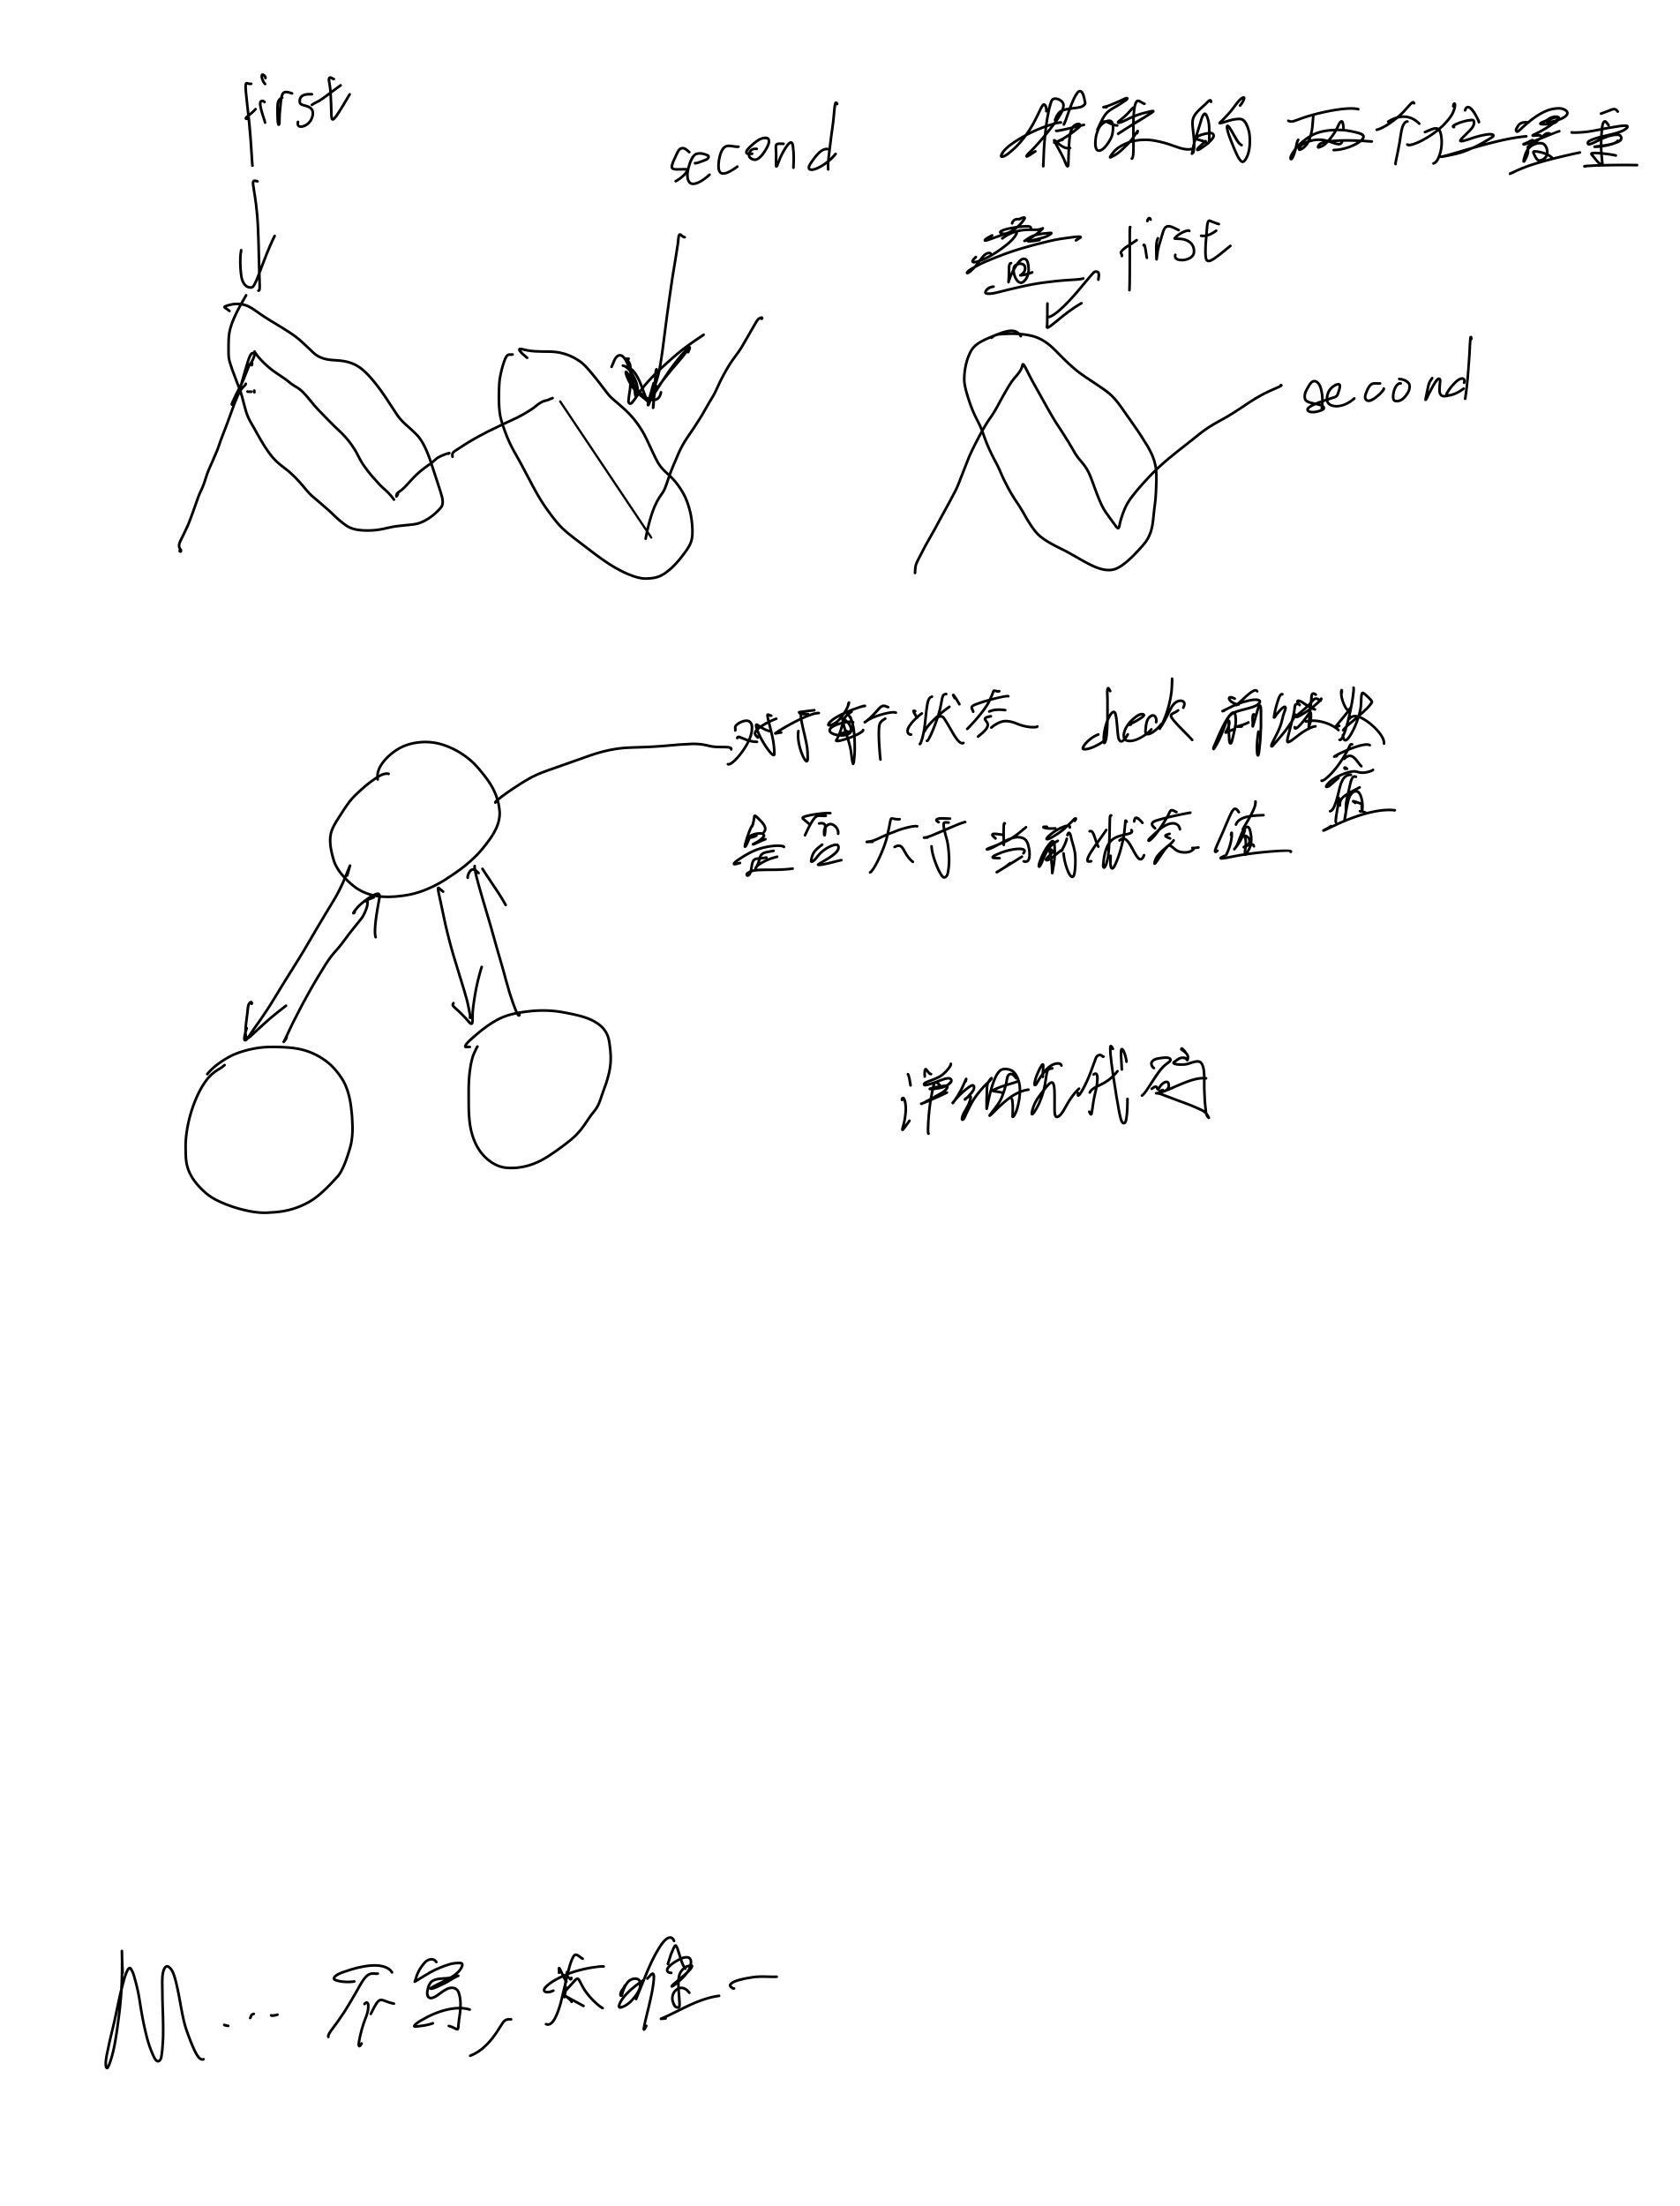 first
second
探索的两个位置重叠
first
second
对于每个状态 check 前继状态值
是否大于当前状态值
详细看代码
M... 不写,太难一